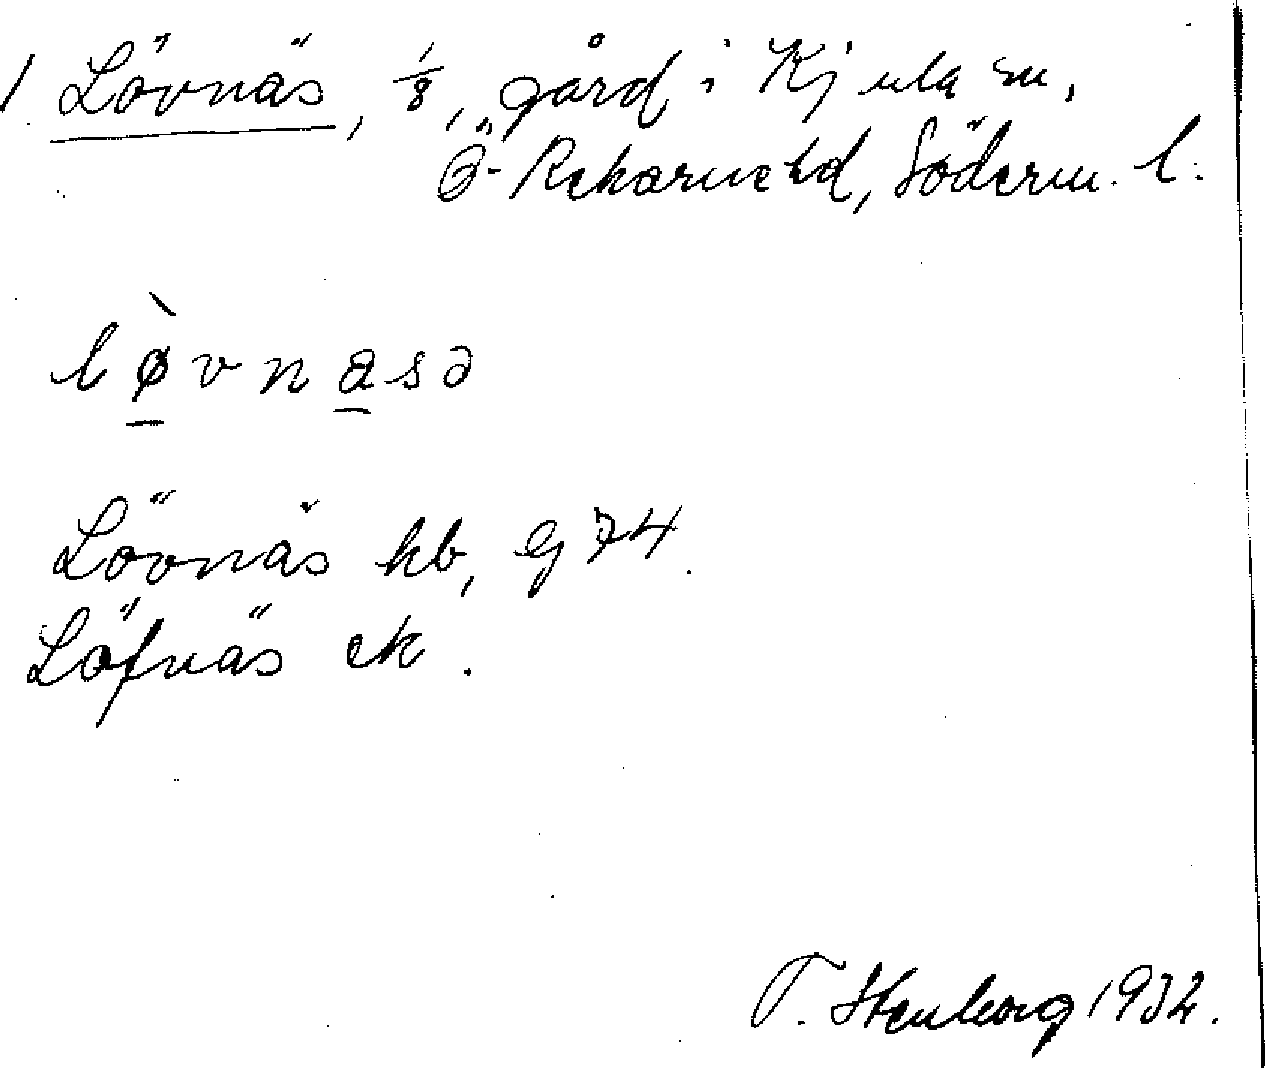 1. Lövnäs, 1/8, gård i Kjula sn,
Ö. Rekarne hd, Söderm. l.
lø̀vnasə
Lövnäs hb, Gj 74.
Löfnäs ek.
T. Stenborg 1932.